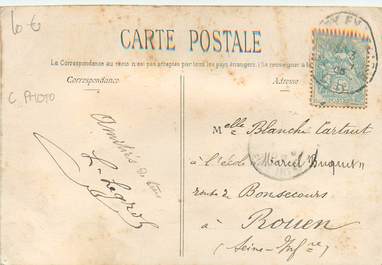 10 €
CARTE POSTALE
La Correspondance au recto n'est pas acceptée par tous les pays étrangers. (Se renseigner à
Correspondance
Adresse
C PHOTO
Amitiés de
L. Legros
Melle Blanche Cartaut
à l'école Marcel Buquet
route de Bonsecours
à Rouen
(Seine-Infre)